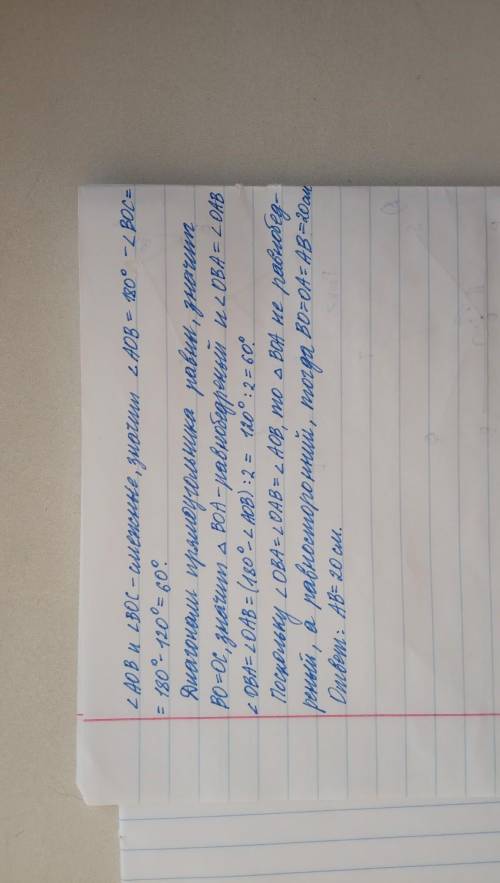 ∠AOB и ∠BOC - смежные, значит ∠AOB = 180° - ∠BOC =
= 180° - 120° = 60°.
Диагонали прямоугольника равны, значит
BO=OC, значит △ BOA - равнобедренный и ∠OBA = ∠OAB
∠OBA = ∠OAB = (180° - ∠AOB) : 2 = 120° : 2 = 60°.
Поскольку ∠OBA = ∠OAB = ∠AOB, то △ BOA не равнобед-
реный, а равносторонний, тогда BO = OA = AB = 20 см
Ответ: AB = 20 см.